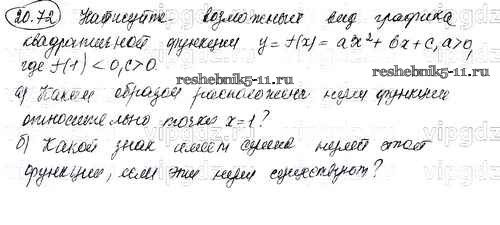 20.72 Нарисуйте возможный вид графика
квадратичной функции y = f(x) = ax² + bx + c, a>0,
где f(1) < 0, c>0.
reshebnik5-11.ru
reshebnik5-11.ru
а) Каким образом расположены нули функции
относительно точки x=1?
vipgdz
vipgdz
б) Какой знак имеет сумма нулей этой
функции, если эти нули существуют?